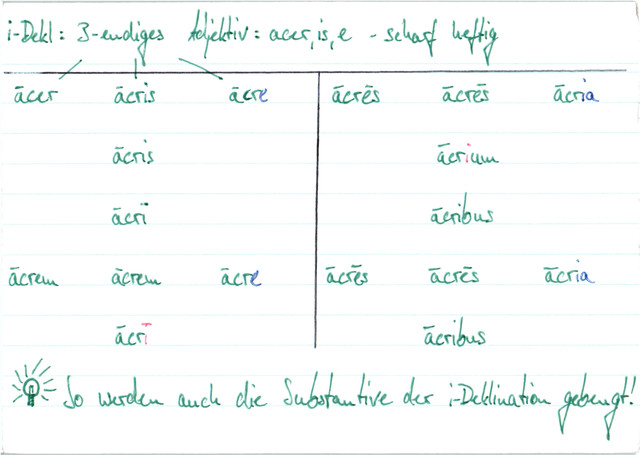 i-Dekl: 3-endiges Adjektiv: acer, is, e - scharf heftig
ācer ācris ācre ācrēs ācrēs ācria
ācris ācrium
ācrī ācribus
ācrem ācrem ācre ācrēs ācrēs ācria
ācrī ācribus
So werden auch die Substantive der i-Deklination gebeugt!